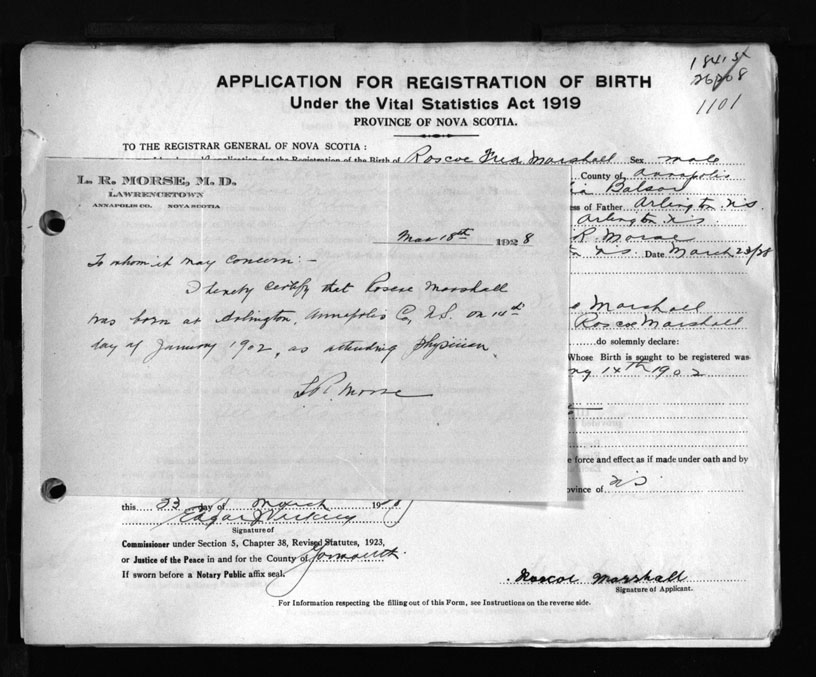 1841 St
26208
1101
APPLICATION FOR REGISTRATION OF BIRTH
Under the Vital Statistics Act 1919
PROVINCE OF NOVA SCOTIA.
TO THE REGISTRAR GENERAL OF NOVA SCOTIA :
application for the Registration of the Birth of Roscoe Fred Marshall Sex male
County of Annapolis
Balsor
ess of Father Arlington N.S.
Arlington N.S.
R. Morse
N.S. Date March 23/28
L. R. MORSE, M. D.
LAWRENCETOWN
ANNAPOLIS CO. NOVA SCOTIA
Mar 18th 1928
To whom it may concern:-
I hereby certify that Roscoe Marshall
was born at Arlington, Annapolis Co, N.S. on 14th
day of January 1902, as attending physician.
L.R. Morse
Marshall
Roscoe Marshall
do solemnly declare:
Whose Birth is sought to be registered was
14th 1902
force and effect as if made under oath and by
ovince of N.S.
this 23 day of March 19
Edgar
Signature of
Commissioner under Section 5, Chapter 38, Revised Statutes, 1923,
or Justice of the Peace in and for the County of Yarmouth
If sworn before a Notary Public affix seal.
Roscoe Marshall
Signature of Applicant.
For Information respecting the filling out of this Form, see Instructions on the reverse side.